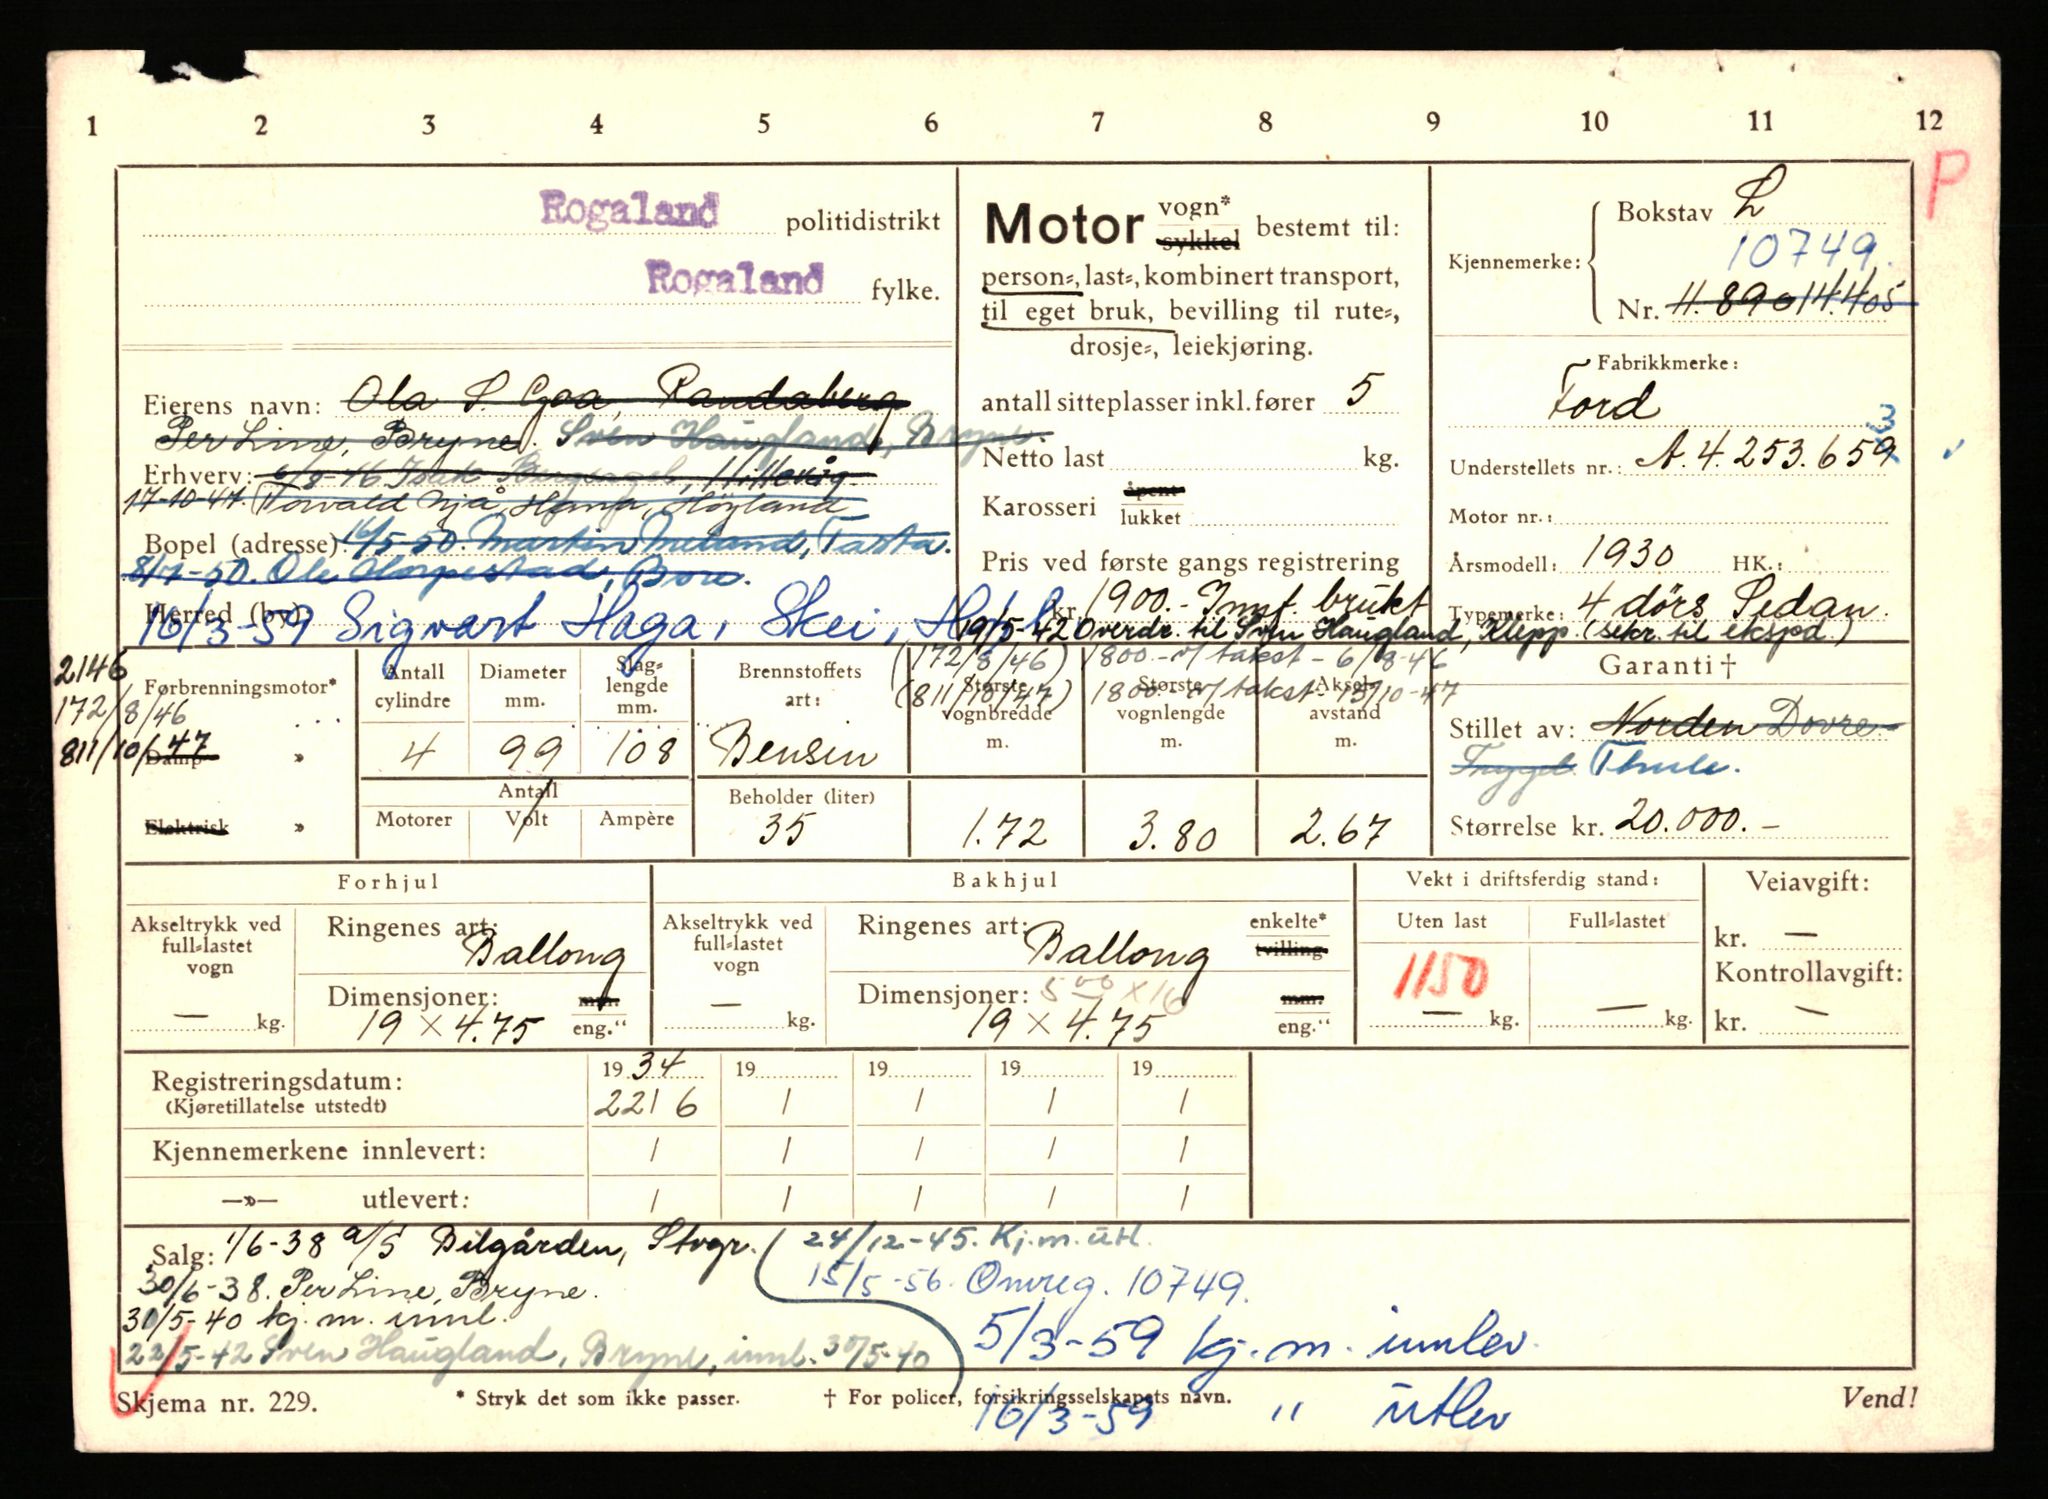 1 2 3 4 5 6 7 8 9 10 11 12
P
Rogaland politidistrikt
Rogaland fylke.
Eierens navn: Ola S. Goa, Randaberg
Per Line, Bryne. Sven Haugland, Bryne.
Erhverv: 6/8-46 Isak Hillevåg
17-10-47. Torvald Njå, Hana, Höyland
Bopel (adresse) 16/5-50. Martin Meland, Tasta.
8/7-50. Ole Horpestad, Bore.
Herred (by):
16/3-59 Sigvart Haga, Skei,
Motor vogn* sykkel bestemt til:
person-, last-, kombinert transport,
til eget bruk, bevilling til rute-,
drosje-, leiekjøring.
antall sitteplasser inkl. fører 5
Netto last kg.
Karosseri åpent lukket
Pris ved første gangs registrering
kr. 1900.- Innf. brukt
19/5-42 Overdr. til Sven Haugland, Klepp. (sekr. til eksped.)
Kjennemerke: Bokstav L
10749.
Nr. 11.890 14.405
Fabrikkmerke:
Ford
3
Understellets nr.: A.4.253.659
Motor nr.:
Årsmodell: 1930 HK.:
Typemerke: 4 dørs Sedan.
2146
172/8/46
811/10/47
Forbrenningsmotor*
Damp »
Elektrisk »
Antall cylindre
4
Diameter mm.
99
Slaglengde mm.
108
Antall
Motorer Volt Ampère
Brennstoffets art:
Bensin
Beholder (liter)
35
(172/8/46) 1800.- v/takst - 6/8-46
(811/10/47) 1800.- v/takst - 13/10-47
Største vognbredde m.
1.72
Største vognlengde m.
3.80
Aksel-avstand m.
2.67
Garanti †
Stillet av: Norden Dovre
Trygd. Thule.
Størrelse kr. 20.000.-
Forhjul
Akseltrykk ved full-lastet vogn
— kg.
Ringenes art:
Ballong
Dimensjoner: mm.
19 × 4.75 eng."
Bakhjul
Akseltrykk ved full-lastet vogn
— kg.
Ringenes art: enkelte* tvilling
Ballong
Dimensjoner: 500 × 16 mm.
19 × 4.75 eng."
Vekt i driftsferdig stand:
Uten last Full-lastet
1150
— kg. — kg.
Veiavgift:
kr. —
Kontrollavgift:
kr. —
Registreringsdatum: 19 34 19 19 19 19
(Kjøretillatelse utstedt) 22 / 6 / / / /
Kjennemerkene innlevert: / / / / /
—»— utlevert: / / / / /
Salg: 1/6-38 A/S Bilgården, Stvgr.
30/6-38. Per Line, Bryne.
31/5-40 kj. m. innl.
22/5-42 Sven Haugland, Bryne, innl. 30/5-40
24/12-45. Kj. m. utl.
15/5-56. Omreg. 10749.
5/3-59 kj. m. innlev.
16/3-59 " utlev
Skjema nr. 229. * Stryk det som ikke passer. † For policer, forsikringsselskapets navn. Vend!